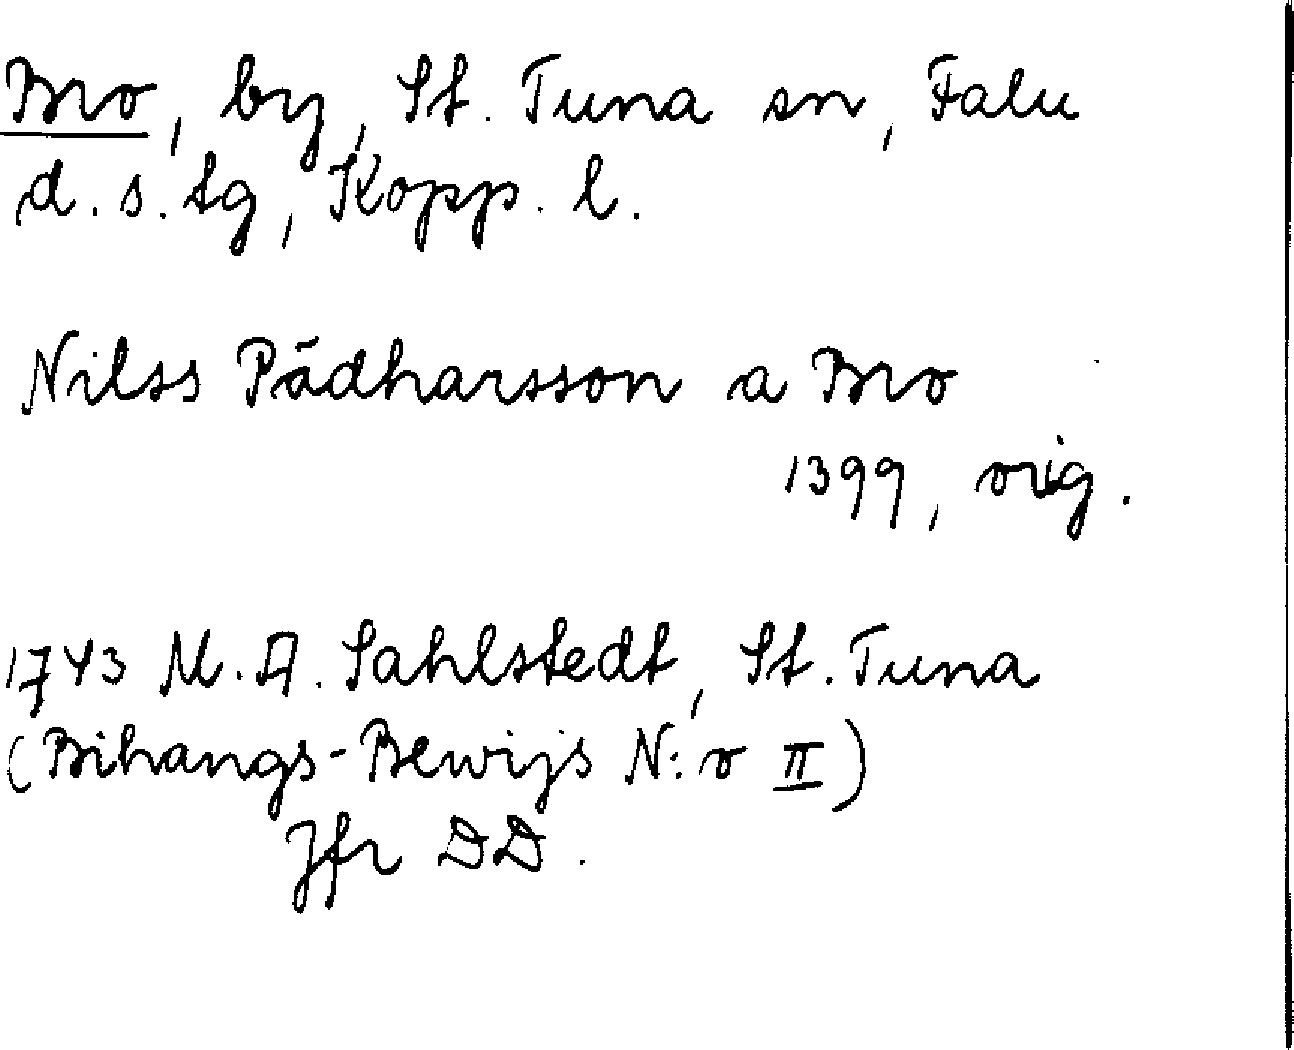 Bro, by, St. Tuna sn, Falu
d. s. tg, Kopp. l.
Nilss Pädharsson a Bro
1399, orig.
1743 M. A. Sahlstedt, St. Tuna
(Bihangs-Bewijs N:o II)
Jfr DD.